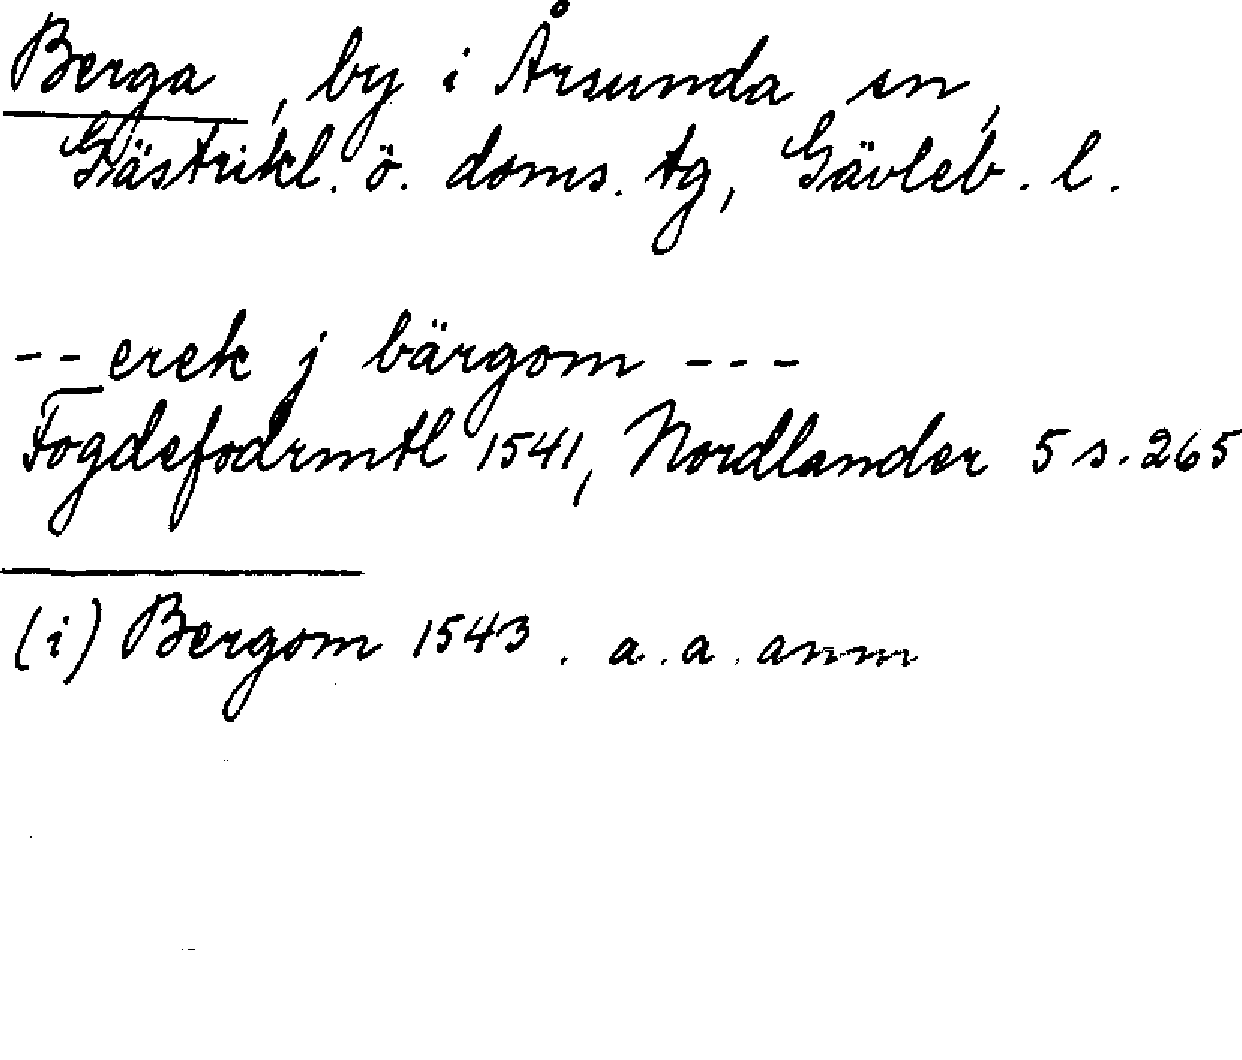 Berga, by i Årsunda sn,
Gästrikl. ö. doms. tg, Gävleb. l.
-- erek j bärgom ---
Fogdefodrmtl 1541, Nordlander 5 s. 265
(i) Bergom 1543. a.a. anm